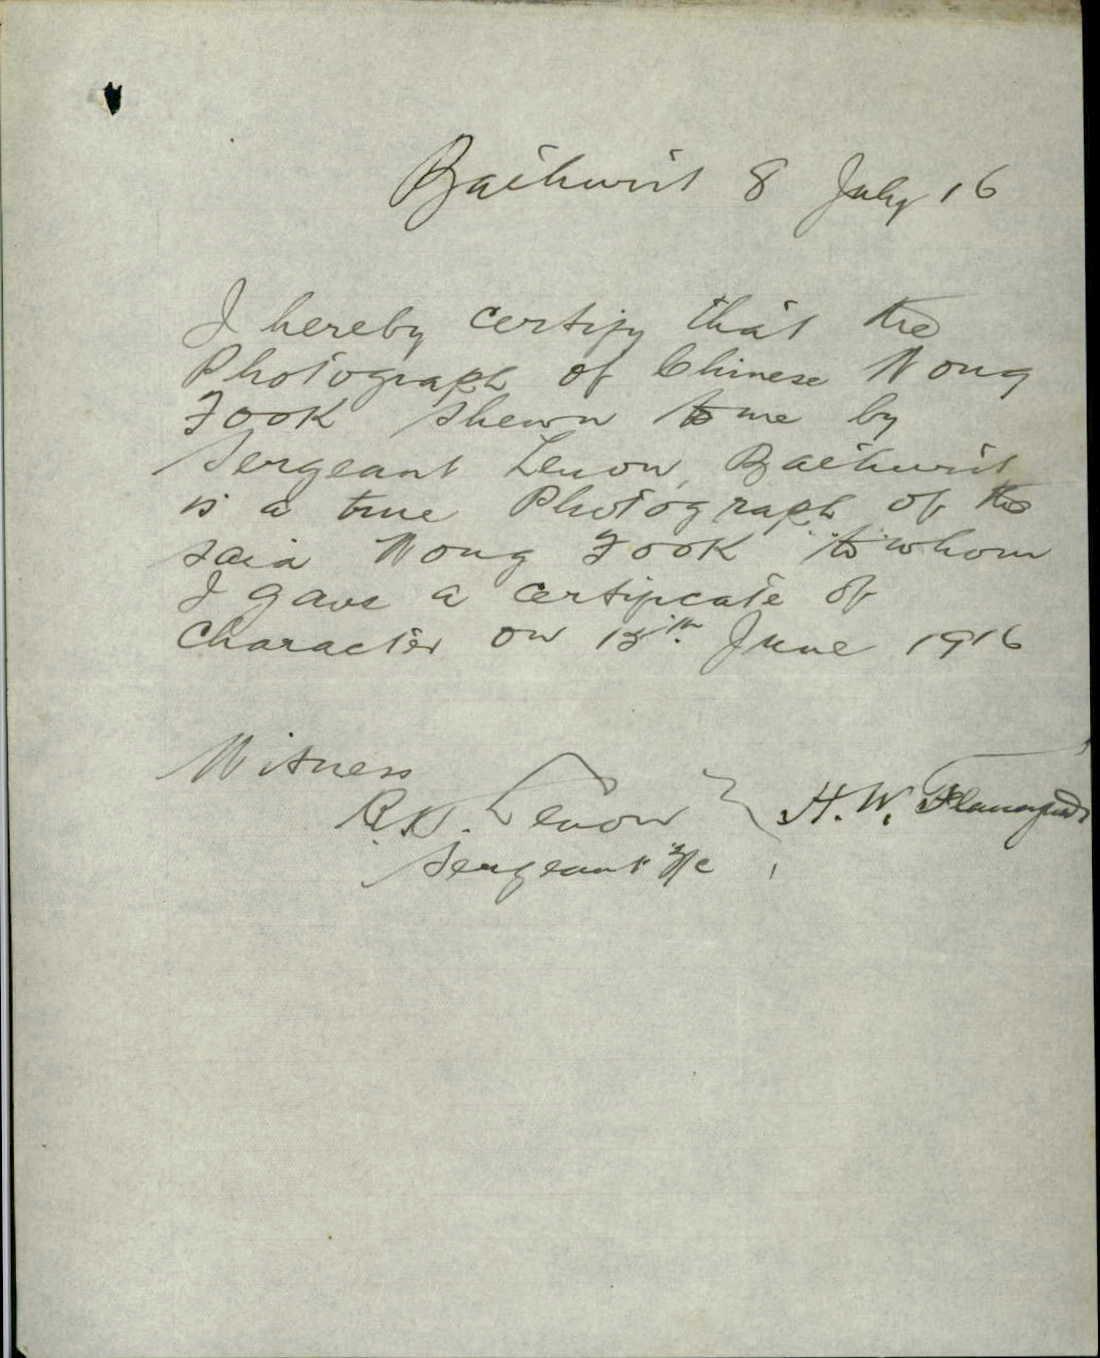 Bathurst 8 July 16
I hereby certify that the
Photograph of Chinese Wong
Fook shewn to me by
Sergeant Lenon, Bathurst
is a true Photograph of the
said Wong Fook to whom
I gave a certificate of
Character on 13th June 1916
Witness
Lenon } H. W.
Sergeant